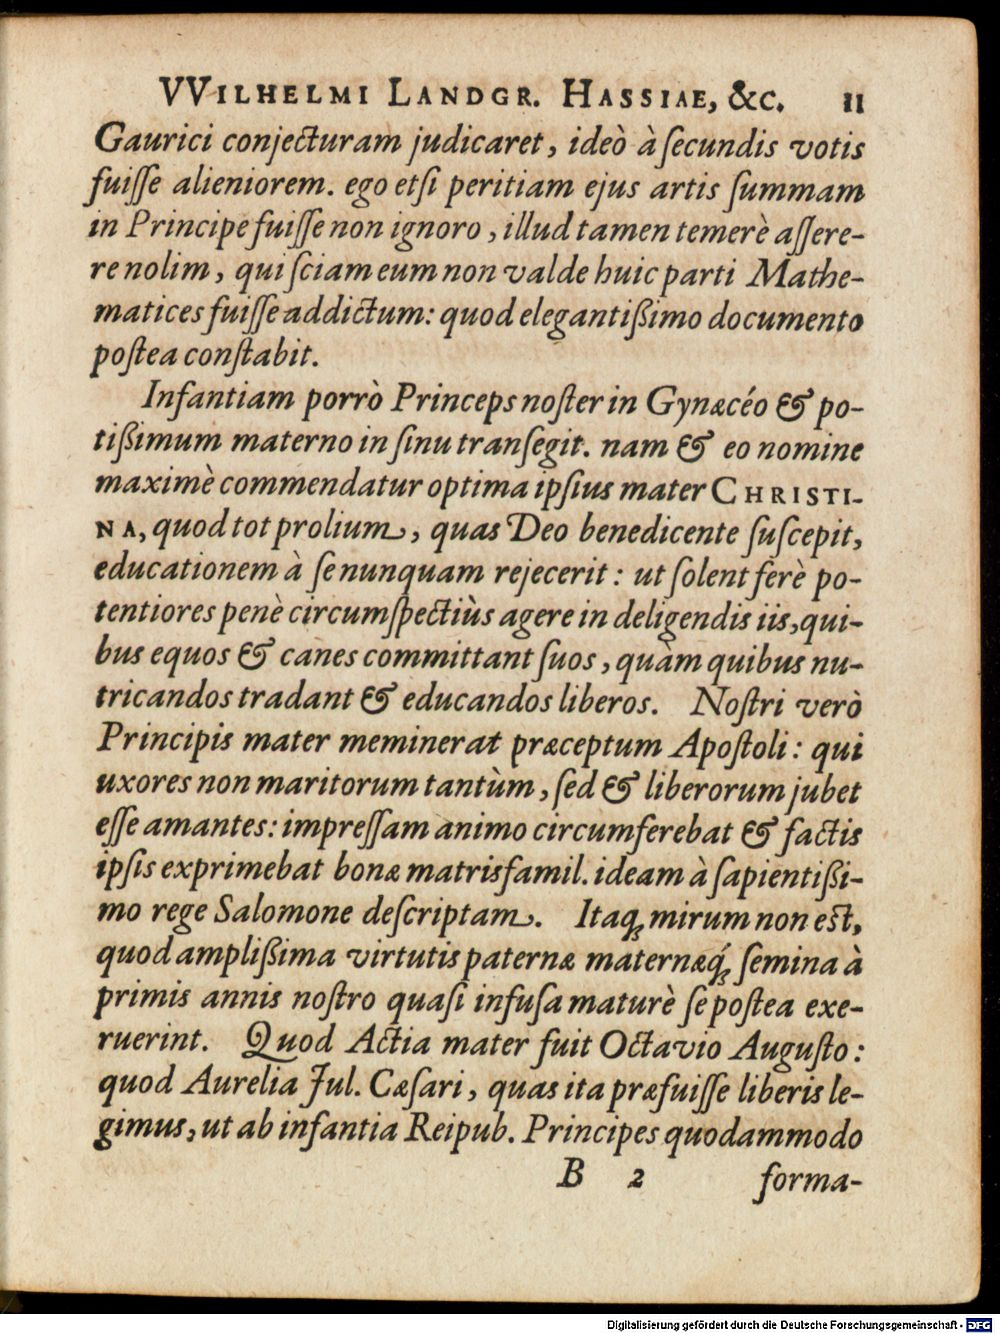 VVILHELMI LANDGR. HASSIAE, &C. 11
Gaurici conjecturam judicaret, ideò à ſecundis votis
fuiſſe alieniorem. ego etſi peritiam ejus artis ſummam
in Principe fuiſſe non ignoro, illud tamen temerè aſſere-
re nolim, qui ſciam eum non valde huic parti Mathe-
matices fuiſſe addictum: quod elegantiſſimo documento
poſtea conſtabit.
Infantiam porrò Princeps noſter in Gynæcéo & po-
tiſſimum materno in ſinu tranſegit. nam & eo nomine
maximè commendatur optima ipſius mater CHRISTI-
NA, quod tot prolium, quas Deo benedicente ſuſcepit,
educationem à ſe nunquam rejecerit: ut ſolent ferè po-
tentiores penè circumſpectiùs agere in deligendis iis, qui-
bus equos & canes committant ſuos, quàm quibus nu-
tricandos tradant & educandos liberos. Noſtri verò
Principis mater meminerat præceptum Apoſtoli: qui
uxores non maritorum tantùm, ſed & liberorum jubet
eſſe amantes: impreſſam animo circumferebat & factis
ipſis exprimebat bonæ matrisfamil. ideam à ſapientiſſi-
mo rege Salomone deſcriptam. Itaq́; mirum non eſt,
quod ampliſſima virtutis paternæ maternæq́; ſemina à
primis annis noſtro quaſi infuſa maturè ſe poſtea exe-
ruerint. Quod Actia mater fuit Octavio Auguſto:
quod Aurelia Jul. Cæſari, quas ita præfuiſſe liberis le-
gimus, ut ab infantia Reipub. Principes quodammodo
B 2 forma-
Digitalisierung gefördert durch die Deutsche Forschungsgemeinschaft - DFG